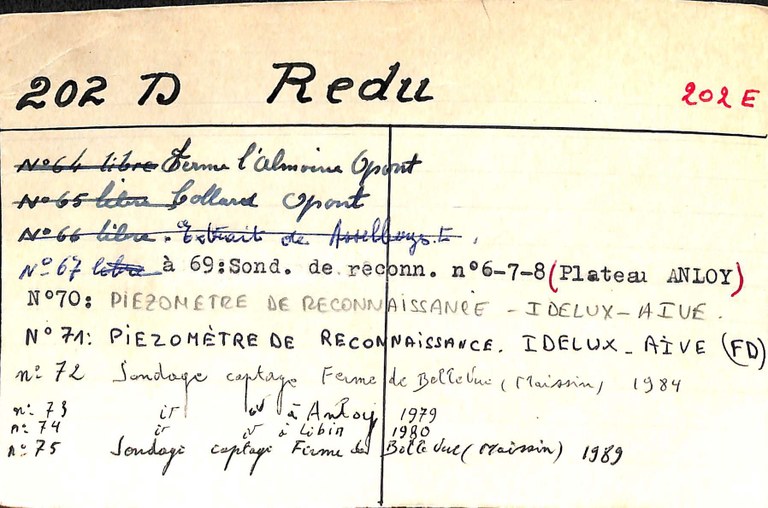 202 D Redu 202 E
N°64 libre Ferme l'Almoine Opont
N°65 libre Collard Opont
N°66 libre. Extrait de
N°67 libre à 69:Sond. de reconn. n°6-7-8(Plateau ANLOY)
N°70: PIEZOMETRE DE RECONNAISSANCE - IDELUX-AIVE.
N°71: PIEZOMÈTRE DE RECONNAISSANCE. IDELUX - AIVE (FD)
n° 72 Sondage captage Ferme de Bellevue (Maissin) 1984
n° 73 id id à Anloy 1979
n° 74 id id à Libin 1980
n° 75 Sondage captage Ferme de Bellevue (Maissin) 1989